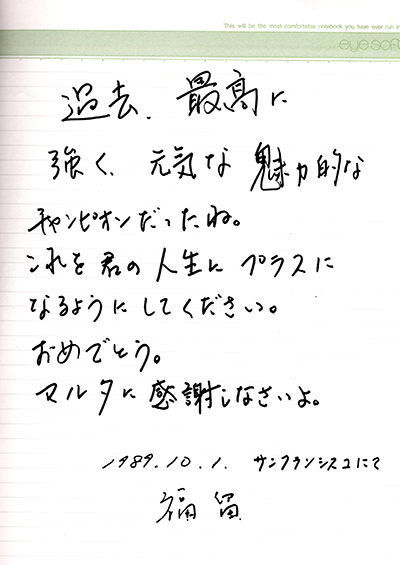 This will be the most comfortable notebook you have ever run in
eye soft
過去、最高に
強く、元気な魅力的な
チャンピオンだったね。
これを君の人生にプラスに
なるようにしてください。
おめでとう。
マルタに感謝しなさいよ。
1989.10.1. サンフランシスコにて
福留